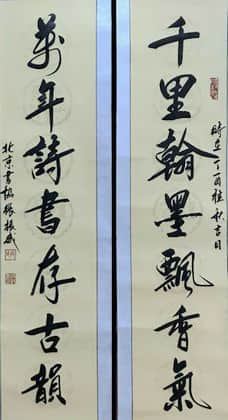 千里翰墨飄香氣
時在丁酉桂秋吉日
萬年詩書存古韻
北京書協張振盛